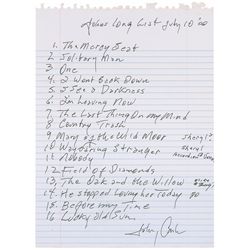 Johns Song List July 10 00
1. The Mercy Seat
2 Solitary Man
3. One
4. I Won't Back Down
5, I See a Darkness
6. I'm Leaving Now
7. The Last Thing On My Mind
8 Country Trash
9 Mary of the Wild Moor Sheryl
10 Wayfaring Stranger Sheryl
11 Nobody Accordion
12 Field of Diamonds
13, The Oak and the Willow
14 He stopped Loving her Today
15 Before my Time
16 Lucky old Sun
Johnny Cash